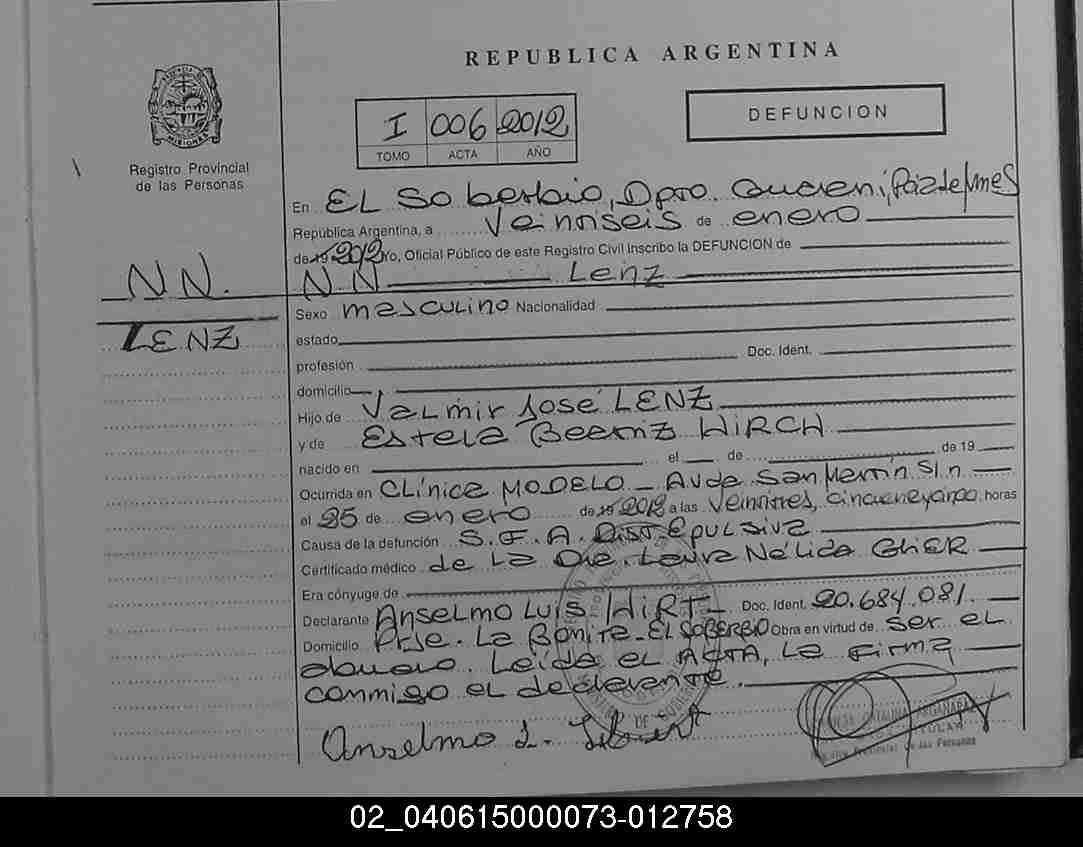 REPUBLICA ARGENTINA
DEFUNCION
I 006 2012
TOMO ACTA AÑO
Registro Provincial
de las Personas
NN.
LENZ
En EL Soberbio, Dpto. Guaraní, Pcia de Mnes
República Argentina, a Veintiseis de enero
de 19 2012 Yo, Oficial Público de este Registro Civil inscribo la DEFUNCION de
N.N Lenz
Sexo masculino Nacionalidad
estado
profesión Doc. Ident.
domicilio
Hijo de Valmir José LENZ
y de Estela Beatriz HIRCH
nacido en el de de 19
Ocurrida en CLínica MODELO - Avda San Martín S/n
el 25 de enero de 19 2012 a las Veintitres, cincuenta y cinco horas
Causa de la defunción S.F.A. Dist. Epulsiva
Certificado médico de La Dra. Laura Nélida GHER
Era cónyuge de
Declarante Anselmo Luis HIRT Doc. Ident. 20.684.081.
Domicilio Pje. La Bonita - EL SOBERBIO Obra en virtud de ser el
abuelo. Leída el ACTA, La firma
conmigo el declarante.
Anselmo L.
TITULAR
Registro Provincial de las Personas
02_040615000073-012758